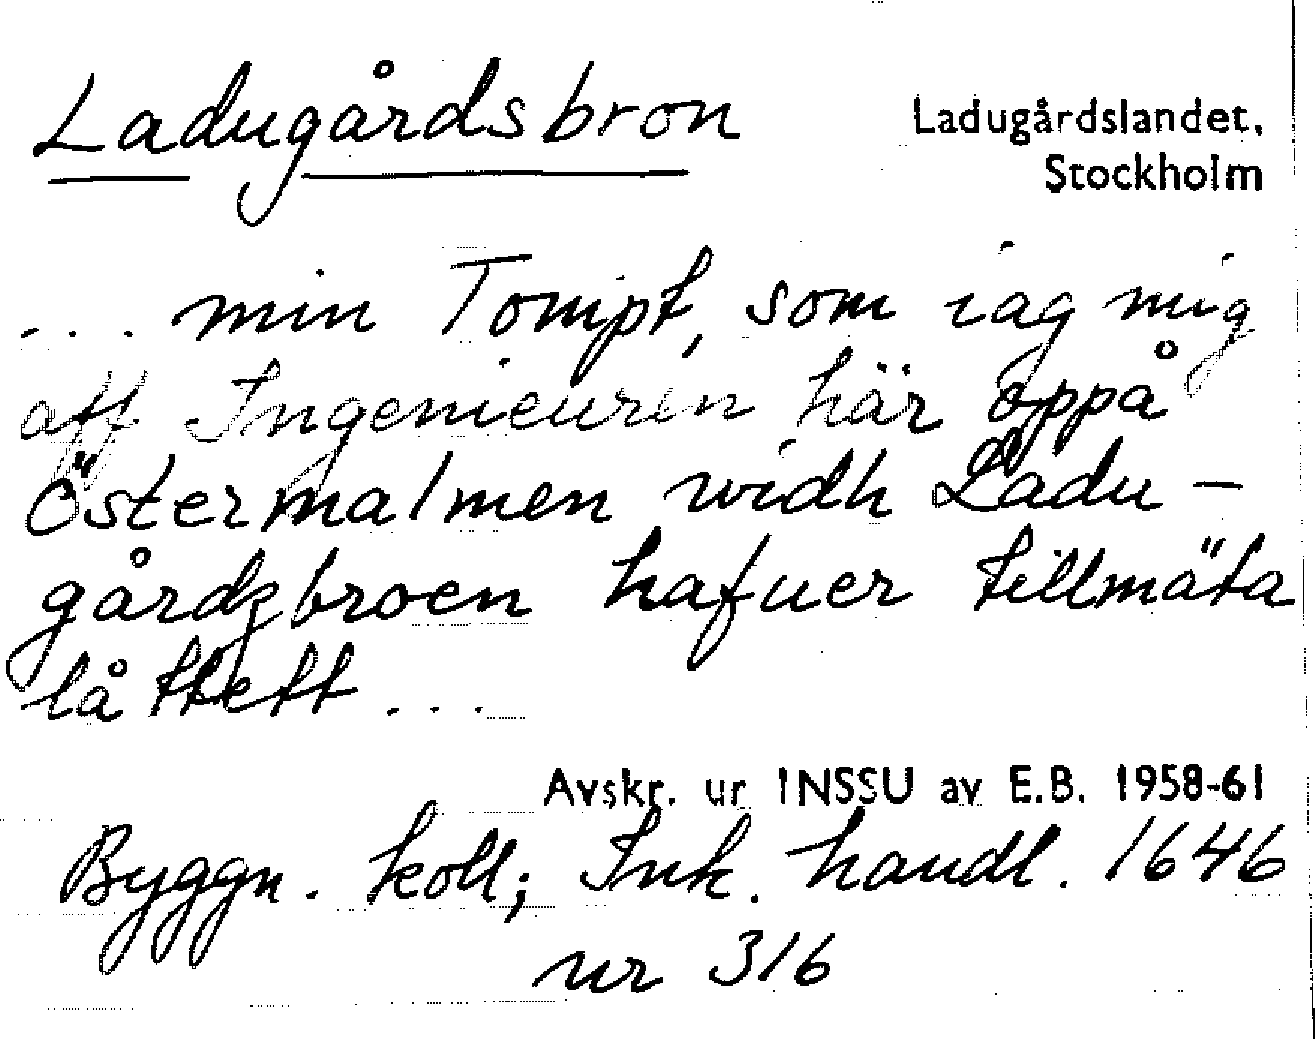 Ladugårdsbron
Ladugårdslandet,
Stockholm
... min Tompt, som iag mig
aff Ingenieuren här åppå
Östermalmen widh Ladu-
gårdzbroen hafuer tillmäta
låttett ...
Avskr. ur INSSU av E.B. 1958-61
Byggn. koll; Ink. handl. 1646
nr 316